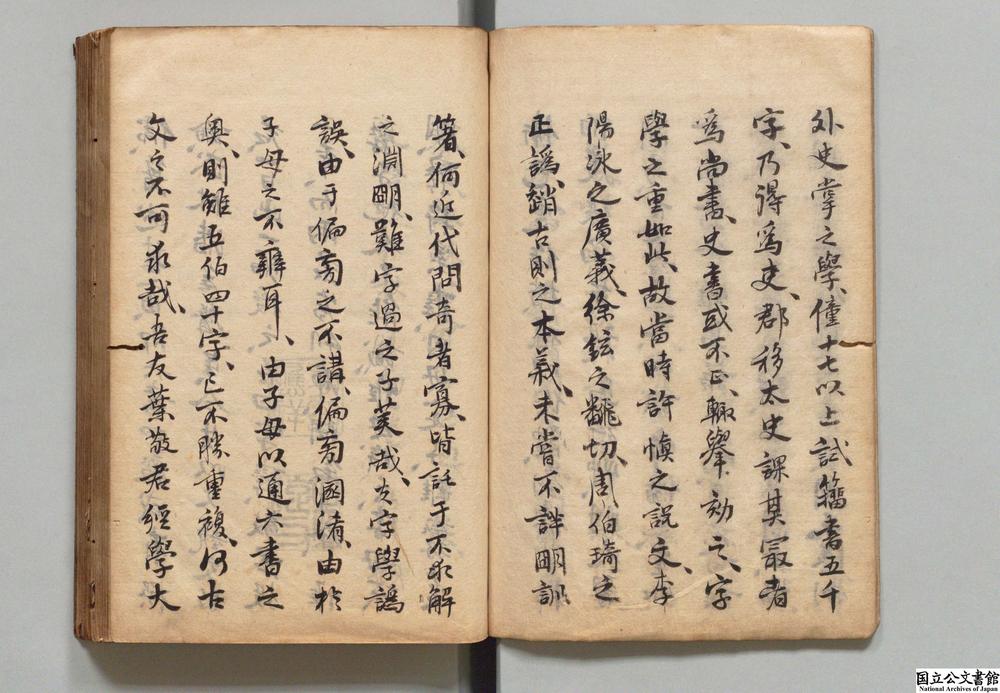 外史掌之學、僮十七以上試籀書五千
字、乃得為吏、郡移太史課其最者
為尚書、史書或不正、輙舉劾之、字
學之重如此、故當時許慎之説文、李
陽氷之廣義、徐鉉之飜切、周伯琦之
正譌、趙古則之本義、未嘗不詳明訓
箸、何近代問奇者寡、皆託于不求解
之淵明、難字過之子美哉、夫字學譌
誤、由于偏旁之不講、偏旁溷淆、由於
子母之不辯耳、由子母以通六書之
奥、則雖五伯四十字、已不勝重複、何古
文之不可求哉、吾友葉敬君經學大
国立公文書館
National Archives of Japan